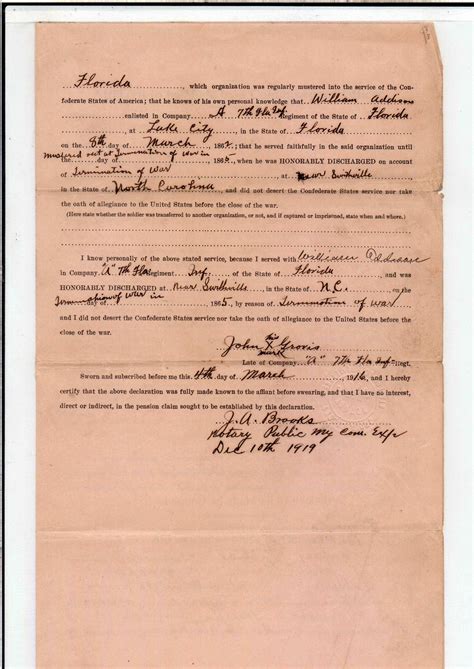 Florida, which organization was regularly mustered into the service of the Con-
federate States of America; that he knows of his own personal knowledge that William Addison
enlisted in Company A 7th Fla Inf. Regiment of the State of Florida
at Lake City, in the State of Florida
on the 8th day of March 186, that he served faithfully in the said organization until
mustered out at Termination of war in
the day of 1865, when he was HONORABLY DISCHARGED on account
of Termination of war at near Smithville
in the State of North Carolina, and did not desert the Confederate States service nor take
the oath of allegiance to the United States before the close of the war.
(Here state whether the soldier was transferred to another organization, or not, and if captured or imprisoned, state when and where.)
I know personally of the above stated service, because I served with William Addison
in Company "A" 7th Fla Regiment Inf. of the State of Florida, and was
HONORABLY DISCHARGED at near Smithville in the State of N.C. on the
Termination of war in 1865, by reason of Termination of war
and I did not desert the Confederate States service nor take the oath of allegiance to the United States before the
close of the war.
his
John X
mark
Late of Company "A" 7th Fla Inf Regt.
Sworn and subscribed before me this 4th day of March 1916, and I hereby
certify that the above declaration was fully made known to the affiant before swearing, and that I have no interest,
direct or indirect, in the pension claim sought to be established by this declaration.
J. A. Brooks
Notary Public My Com. Exp
Dec 10th 1919